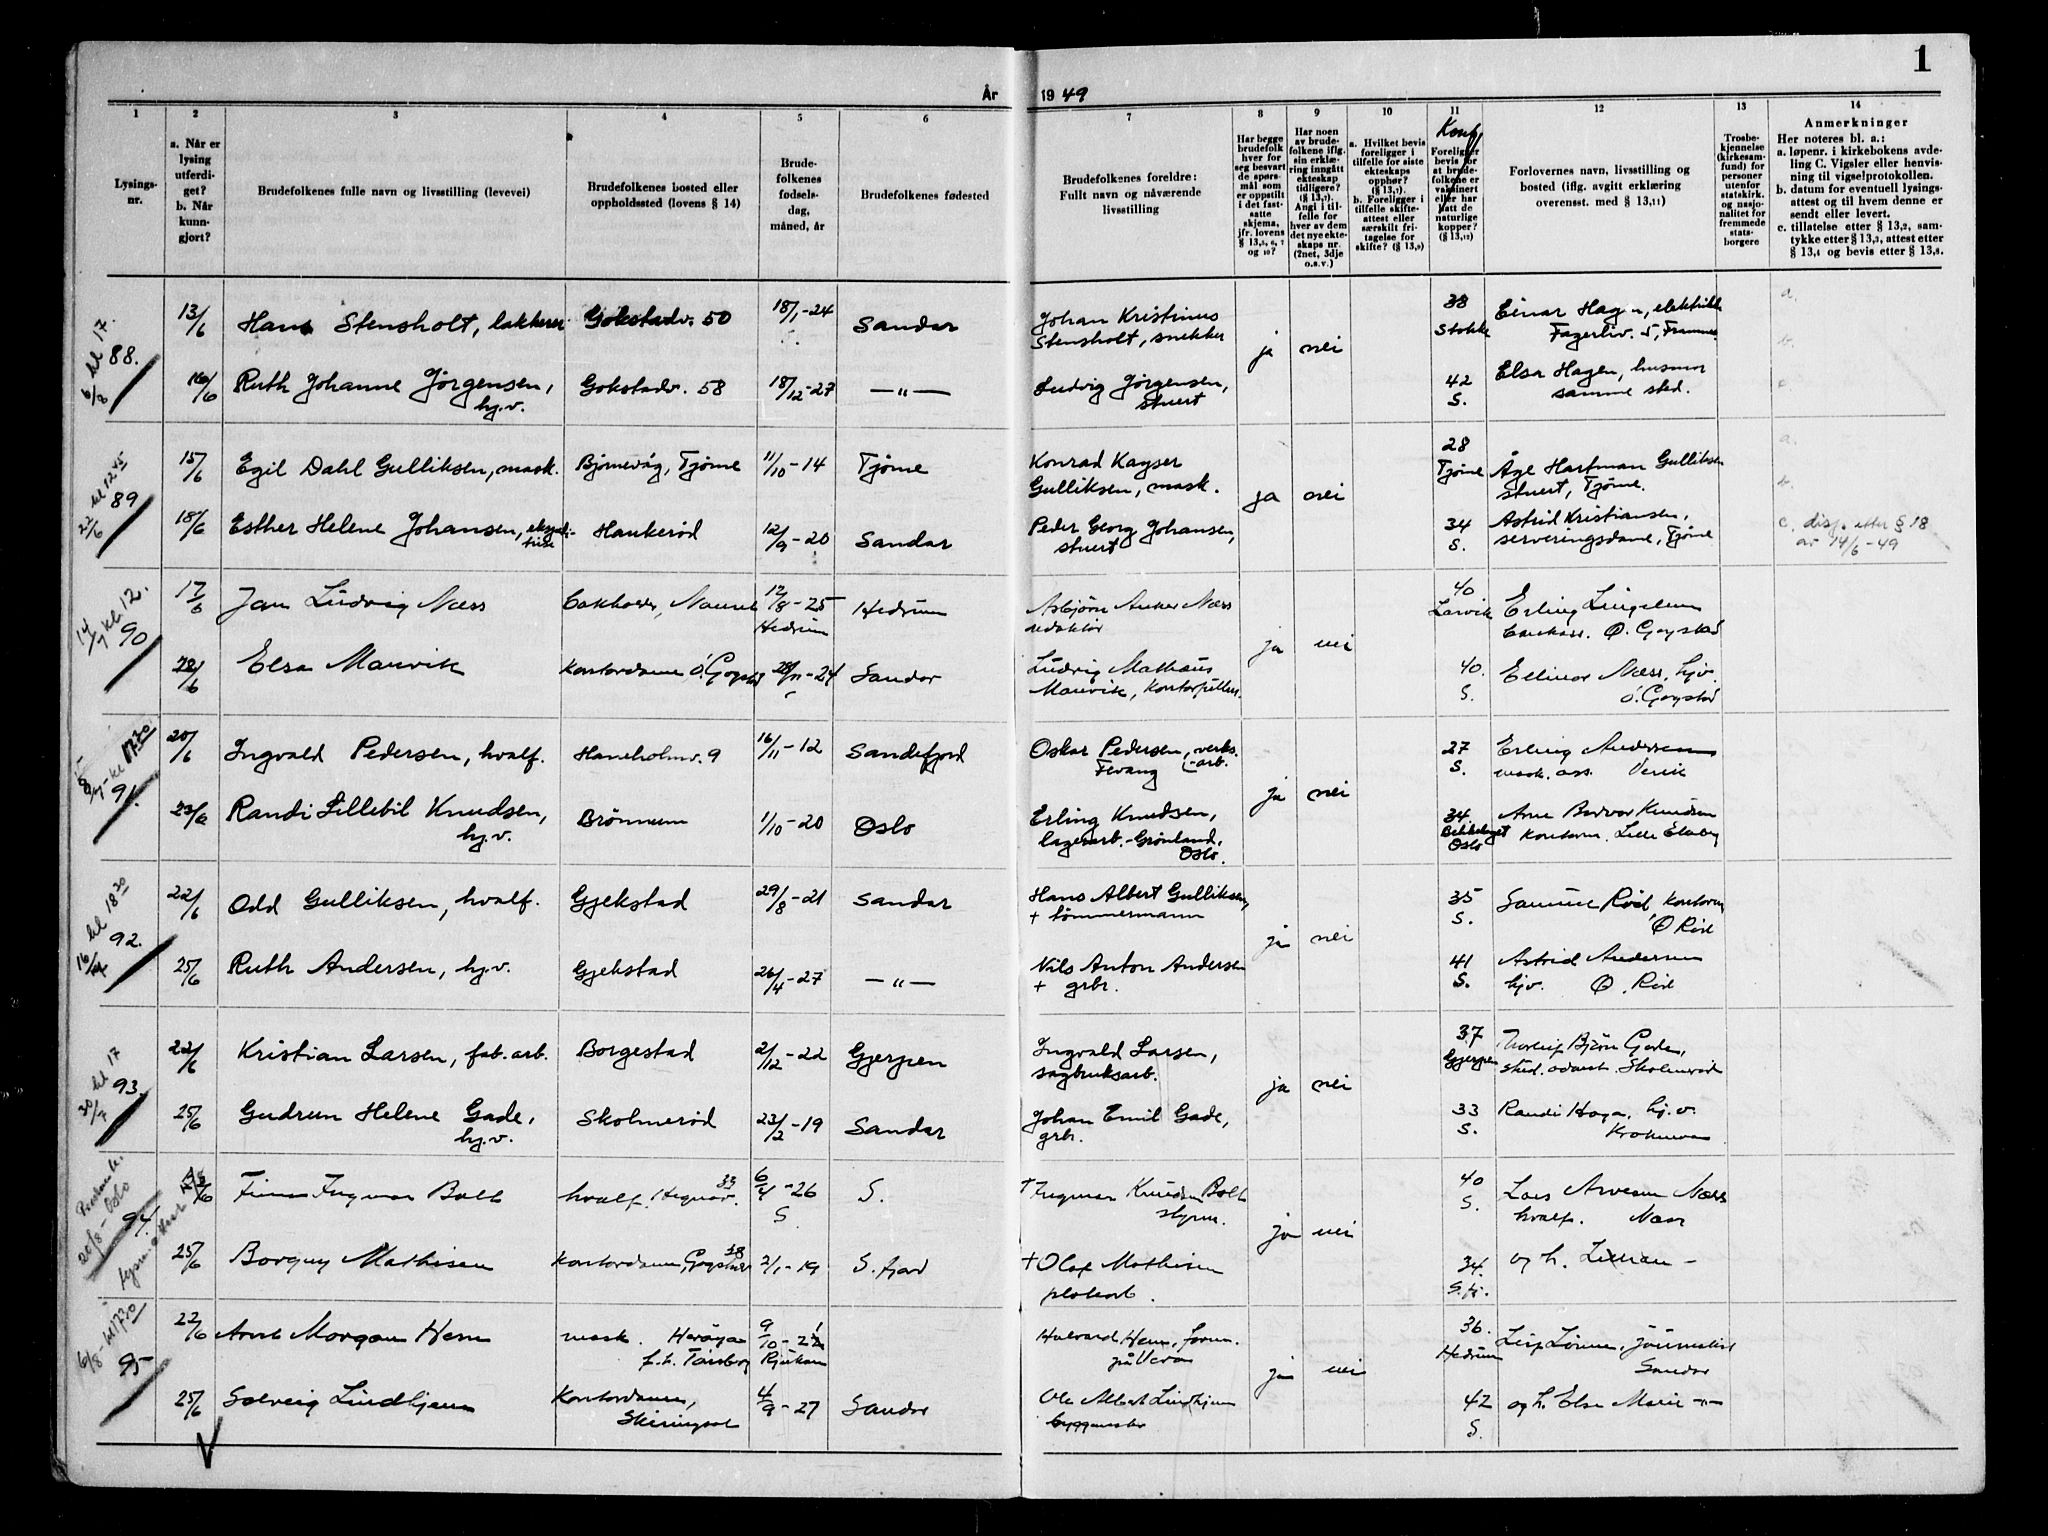 1
År 1949
1 2 3 4 5 6 7 8 9 10 11 12 13 14
Lysings-nr.
a. Når er lysing utferdi-get? b. Når kunn-gjort?
Brudefolkenes fulle navn og livsstilling (levevei)
Brudefolkenes bosted eller oppholdssted (lovens § 14)
Brude-folkenes fødsels-dag, måned, år
Brudefolkenes fødested
Brudefolkenes foreldre: Fullt navn og nåværende livsstilling
Har begge brudefolk hver for seg besvart de spørs-mål som er oppstilt i det fast-satte skjema, jfr. lovens § 13,5, 6, 7 og 10?
Har noen av brude-folkene iflg. sin erklæ-ring inngått ekteskap tidligere? (§ 13,7). Angi i til-felle for hver av dem det nye ekte-skaps nr. (2net, 3dje o.s.v.)
a. Hvilket bevis foreligger i tilfelle for siste ekteskaps opphør? (§ 13,7). b. Foreligger i tilfelle skifte-attest eller særskilt fri-tagelse for skifte? (§ 13,9)
Konf.
Foreligger bevis for at brude-folkene er vaksinert eller har hatt de naturlige kopper? (§ 13,12)
Forlovernes navn, livsstilling og bosted (iflg. avgitt erklæring overensst. med § 13,11)
Trosbe-kjennelse (kirkesam-fund) for personer utenfor statskirk. og nasjo-nalitet for fremmede stats-borgere
Anmerkninger
Her noteres bl. a.:
a. løpenr. i kirkebokens avde-ling C. Vigsler eller henvis-ning til vigselprotokollen.
b. datum for eventuell lysings-attest og til hvem denne er sendt eller levert.
c. tillatelse etter § 13,2, sam-tykke etter § 13,3, attest etter § 13,4 og bevis etter § 13,8.
6/8 kl 17. 88. 13/6 Hans Stensholt, lakkerer Gokstadv. 50 18/1-24 Sandar Johan Kristinus Stensholt, snekker ja nei 38 Stokke Einar Hagen, Fagerliv. 5, a.
b.
16/6 Ruth Johanne Jørgensen, hj.v. Gokstadv. 58 18/12-27 —"— Ludvig Jørgensen, stuert 42 S. Elsa Hagen, husmor samme sted. c.
22/6 kl 12 45 89 15/6 Egil Dahl Gulliksen, mask. Bjørnevåg, Tjøme 11/10-14 Tjøme Konrad Kayser Gulliksen, mask. ja nei 28 Tjøme Åge Hartman Gulliksen stuert, Tjøme. a.
b.
18/6 Esther Helene Johansen, Haukerød 12/9-20 Sandar Peder Georg Johansen, stuert 34 S. Astrid Kristiansen, serveringsdame, Tjøme c. disp. etter § 18 av 14/6-49
14/7 kl. 12. 90 17/6 Jan Ludvig Næss 12/8-25 Hedrum Hedrum Asbjørn Anker Næss redaktør ja nei 40 Larvik Erling Ø. Gogstad
Elsa Mauvik Kontordame Ø. Gogstad 28/11-24 Sandar Ludvig Mathæus Mauvik, 40. S. Ellinor Næss, hjv. Ø. Gogstad
kl 17 30 91. 20/6 Ingvald Pedersen, hvalf. Haneholmv. 9 16/11-12 Sandefjord Oskar Pedersen, verks.-arb. Fevang ja nei 27 S. Erling Andersen mask. ass.
23/6 Randi Lillebil Knudsen, hj.v. 1/10-20 Oslo Erling Knudsen, lagerarb. - Grønland, Oslo. 34. Bekkelaget Oslo Arne Knudsen
16/7 kl 18 30 92. 22/6 Odd Gulliksen, hvalf. Gjekstad 29/8-21 Sandar Hans Albert Gulliksen, + tømmermann ja nei 35 S. Rød Ø Rød
25/6 Ruth Andersen, hj.v. Gjekstad 26/4-27 —"— Nils Anton Andersen + grbr. 41 S. Astrid Andersen hjv. Ø. Rød
30/7 kl 17 93. 22/6 Kristian Larsen, fab. arb. Borgestad 2/12-22 Gjerpen Ingvald Larsen, sagbruksarb. ja nei 37 Gjerpen Bjørn Gade,
25/6 Gudrun Helene Gade, hj.v. Skolmerød 23/2-19 Sandar Johan Emil Gade, grbr. 33 S. Randi Haga, hj.v.
20/8 - Oslo 94. Finn Ingmar Bolt hvalf. 33 6/4-26 S S. + Ingmar Knudsen Bolt styrm. ja nei 40 S. Lars Næss hvalf. Næss
25/6 Borgny Mathisen Kontordame, 38 2/1-19 S. fjord + Olaf Mathisen 34. S.fj. og h. Lillian -
6/8 - kl 17 30 95 22/6 Arnt Morgan Hem mask. Herøya 9/10-21 Rjukan Halvard Hem, ja nei 36. Hedrum Leif journalist Sandar
25/6 Solveig Lindhjem Kontordame, Skiringssal 4/9-27 Sandar Ole Albert Lindhjem byggmester 42 S. og h. Else Marie -"-